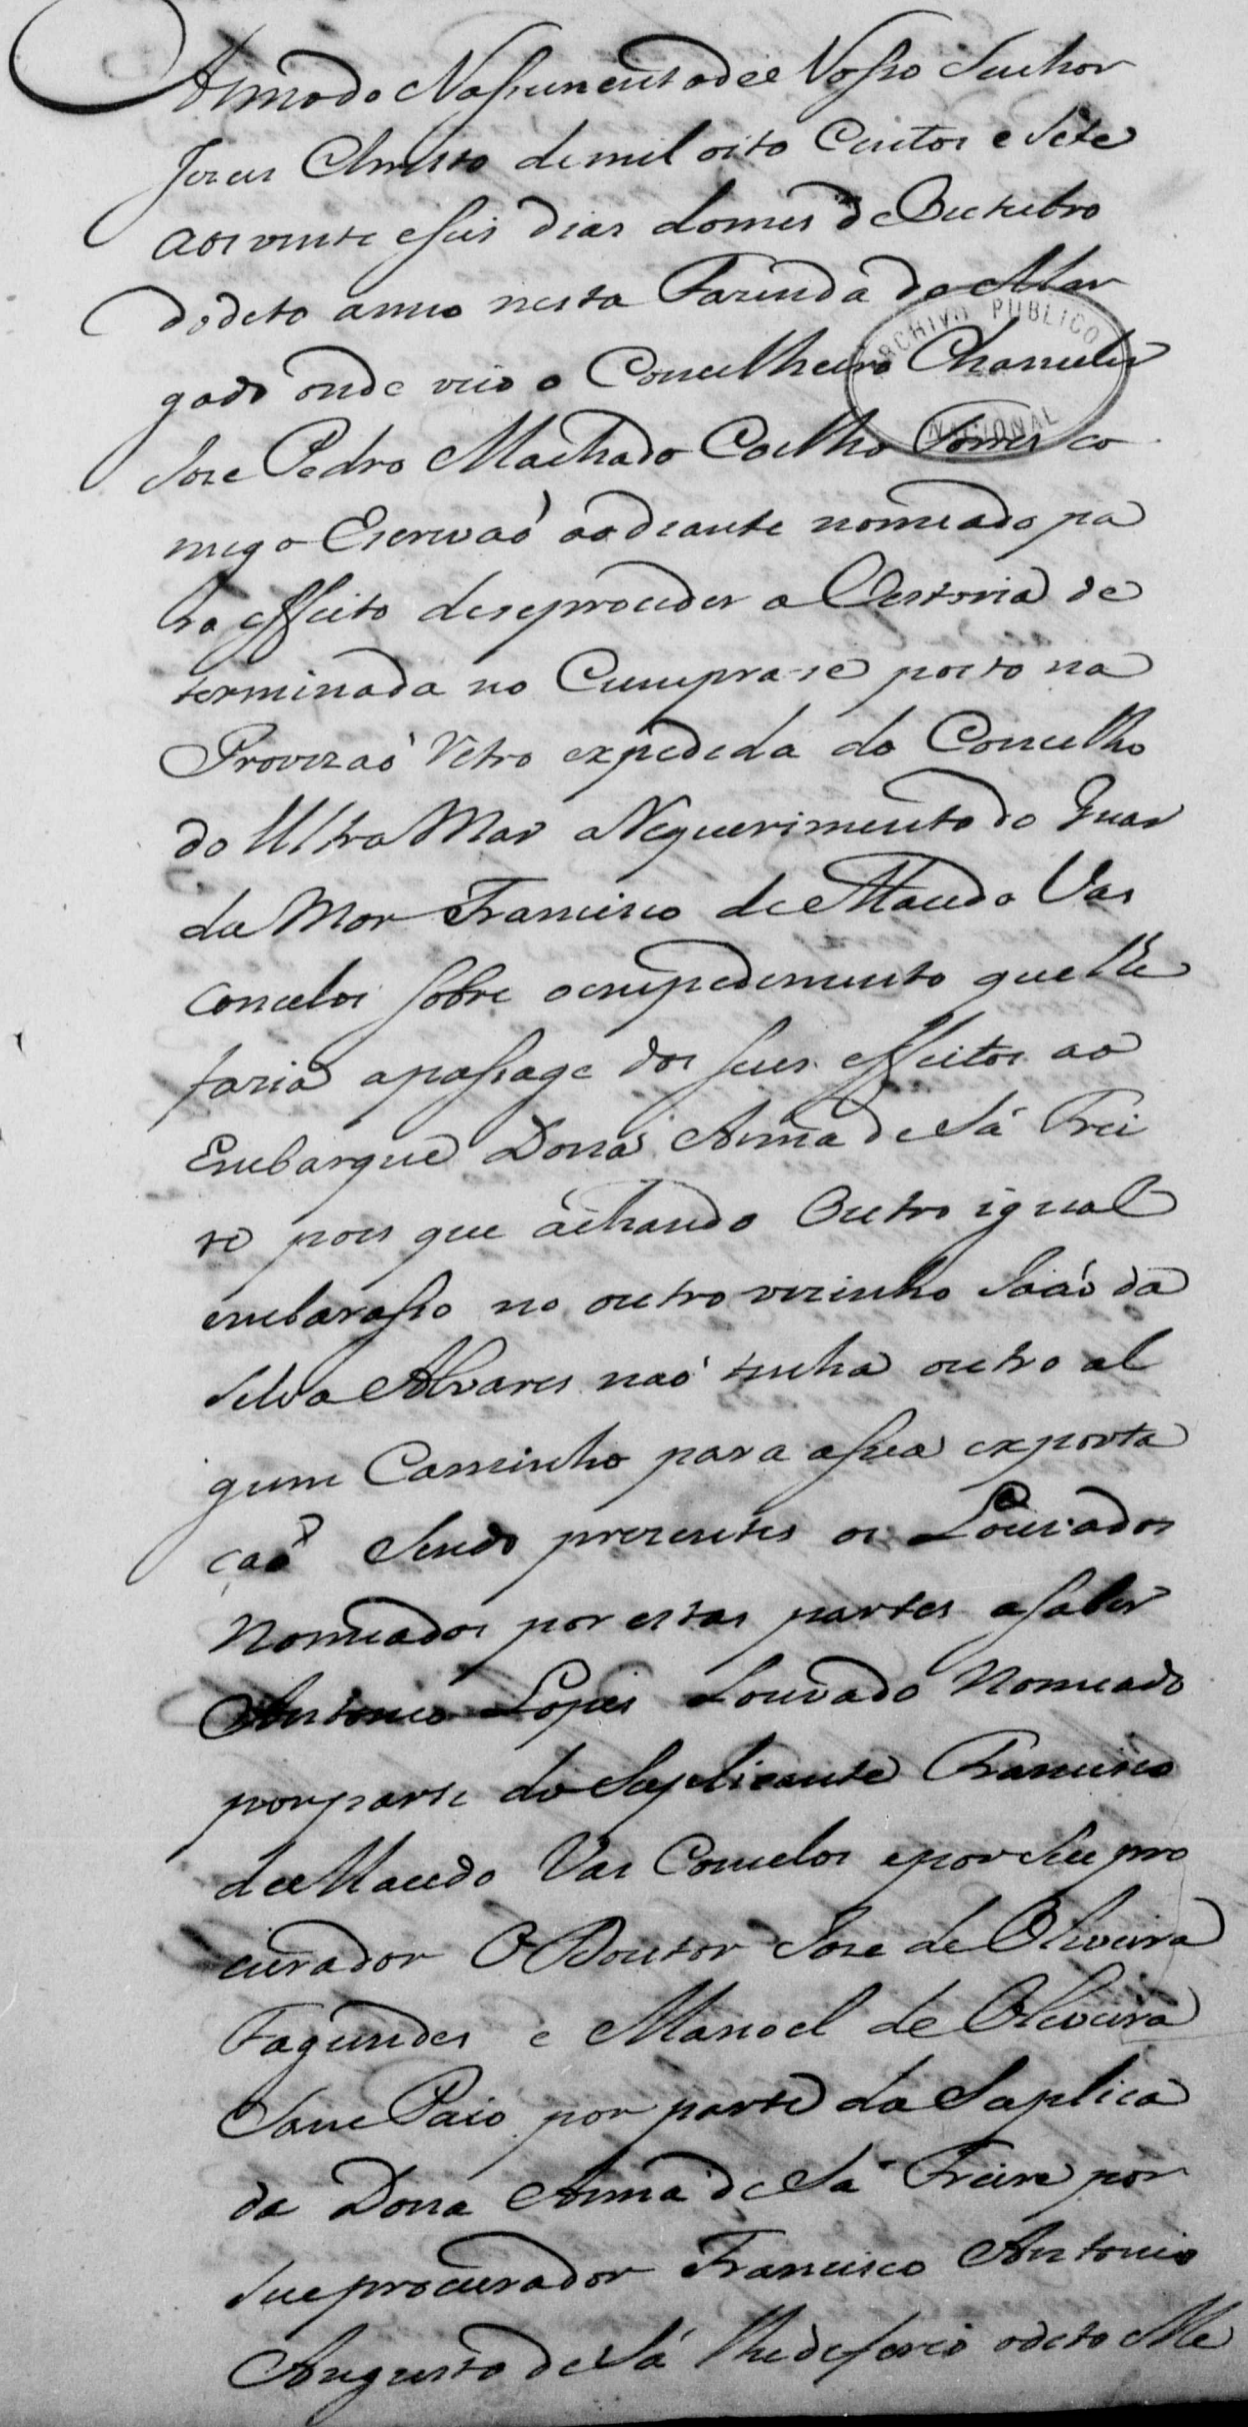 Anno do Nassimento de Nosso Senhor
Jezus Christo de mil oito Centos e Sete
aos vinte e seis dias do mes de Outubro
do dito anno nesta Fazenda do Mor
gado onde veio o Concelheiro Chanceler
Joze Pedro Machado Coelho Torres co
migo Escrivaõ ao diante nomeado pa
ra effeito de se proceder a Vestoria de
terminada no Cumpra-se posto na
Provizaõ retro expedida do Concelho
do Ultra Mar a Requerimento do Guar
da Mor Francisco de Macedo Vas
concelos sobre o empedimento que lhe
fazia a passage dos seus effeitos ao
Embarque Dona Anna de Sá Frei
re pois que achando Outro igual
embarasso no outro vizinho Joaõ da
Silva Alvares naõ tinha outro al
gum Caminho para a sua exporta
çaõ Sendo prezentes os Louvados
Nomeados por estas partes a saber
Antonio Lopes Louvado Nomeado
por parte do Suplicante Francisco
de Macedo Vas Concelos e por seu pro
curador O Doutor Joze de Oliveira
Fagundes e Manoel de Oliveira
Sam Paio por parte da Suplica
da Dona Anna de Sá Freire por
seu procurador Francisco Antonio
Augusto de Sá lhe deferio o dito Me
ARCHIVO PUBLICO
NACIONAL